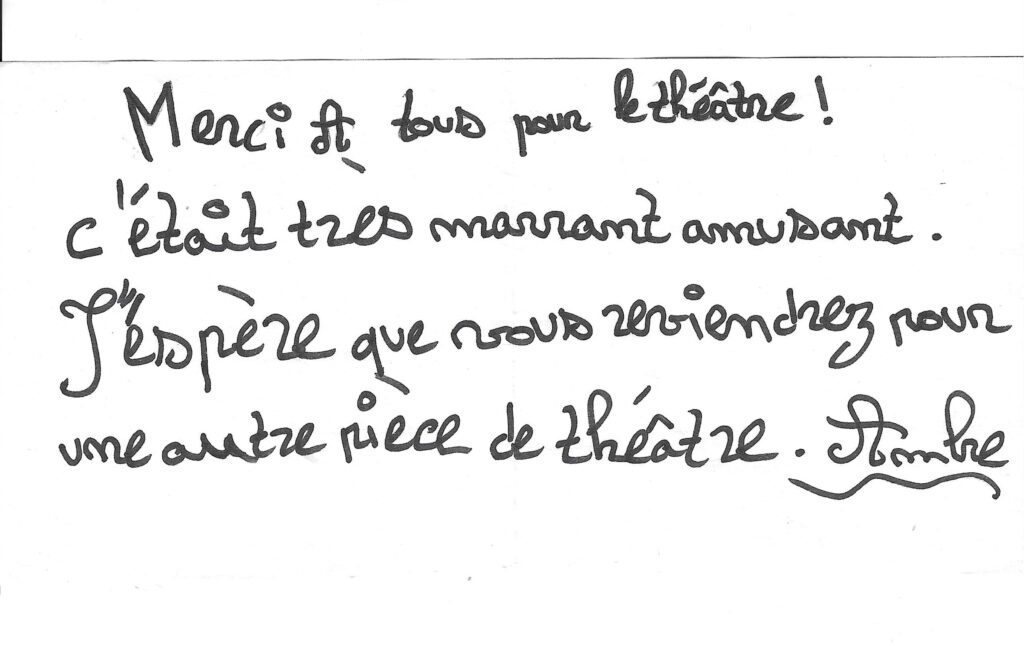 Merci A tous pour le théâtre !
c'était très marrant amusant.
J'espère que vous reviendrez pour
une autre pièce de théâtre. Ambre